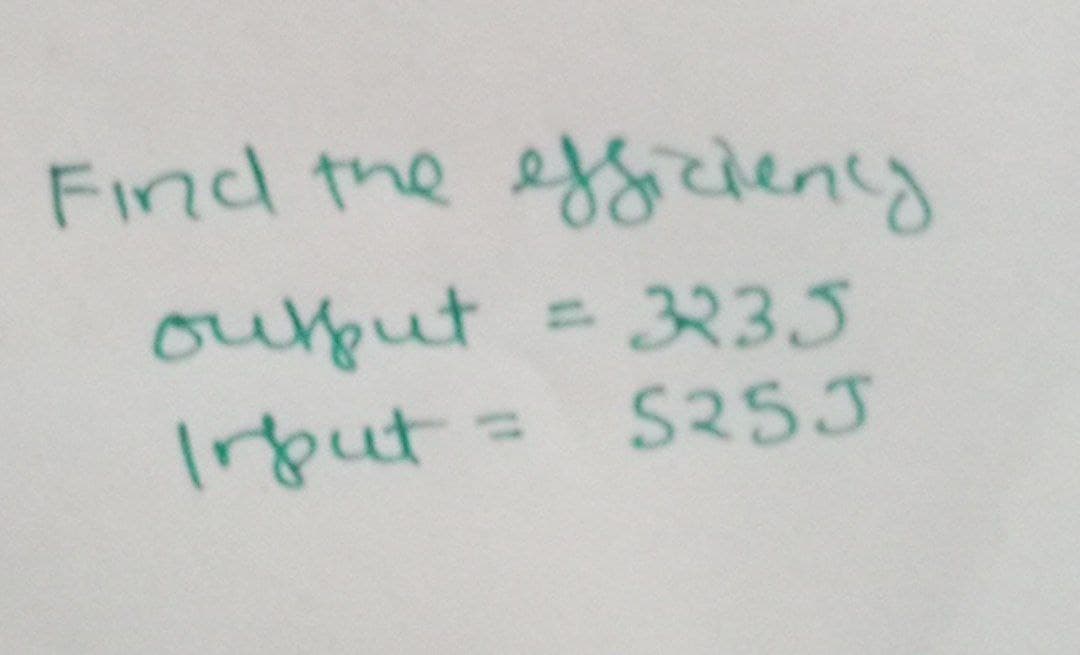 Find the efficiency
output = 323J
Input = 525J